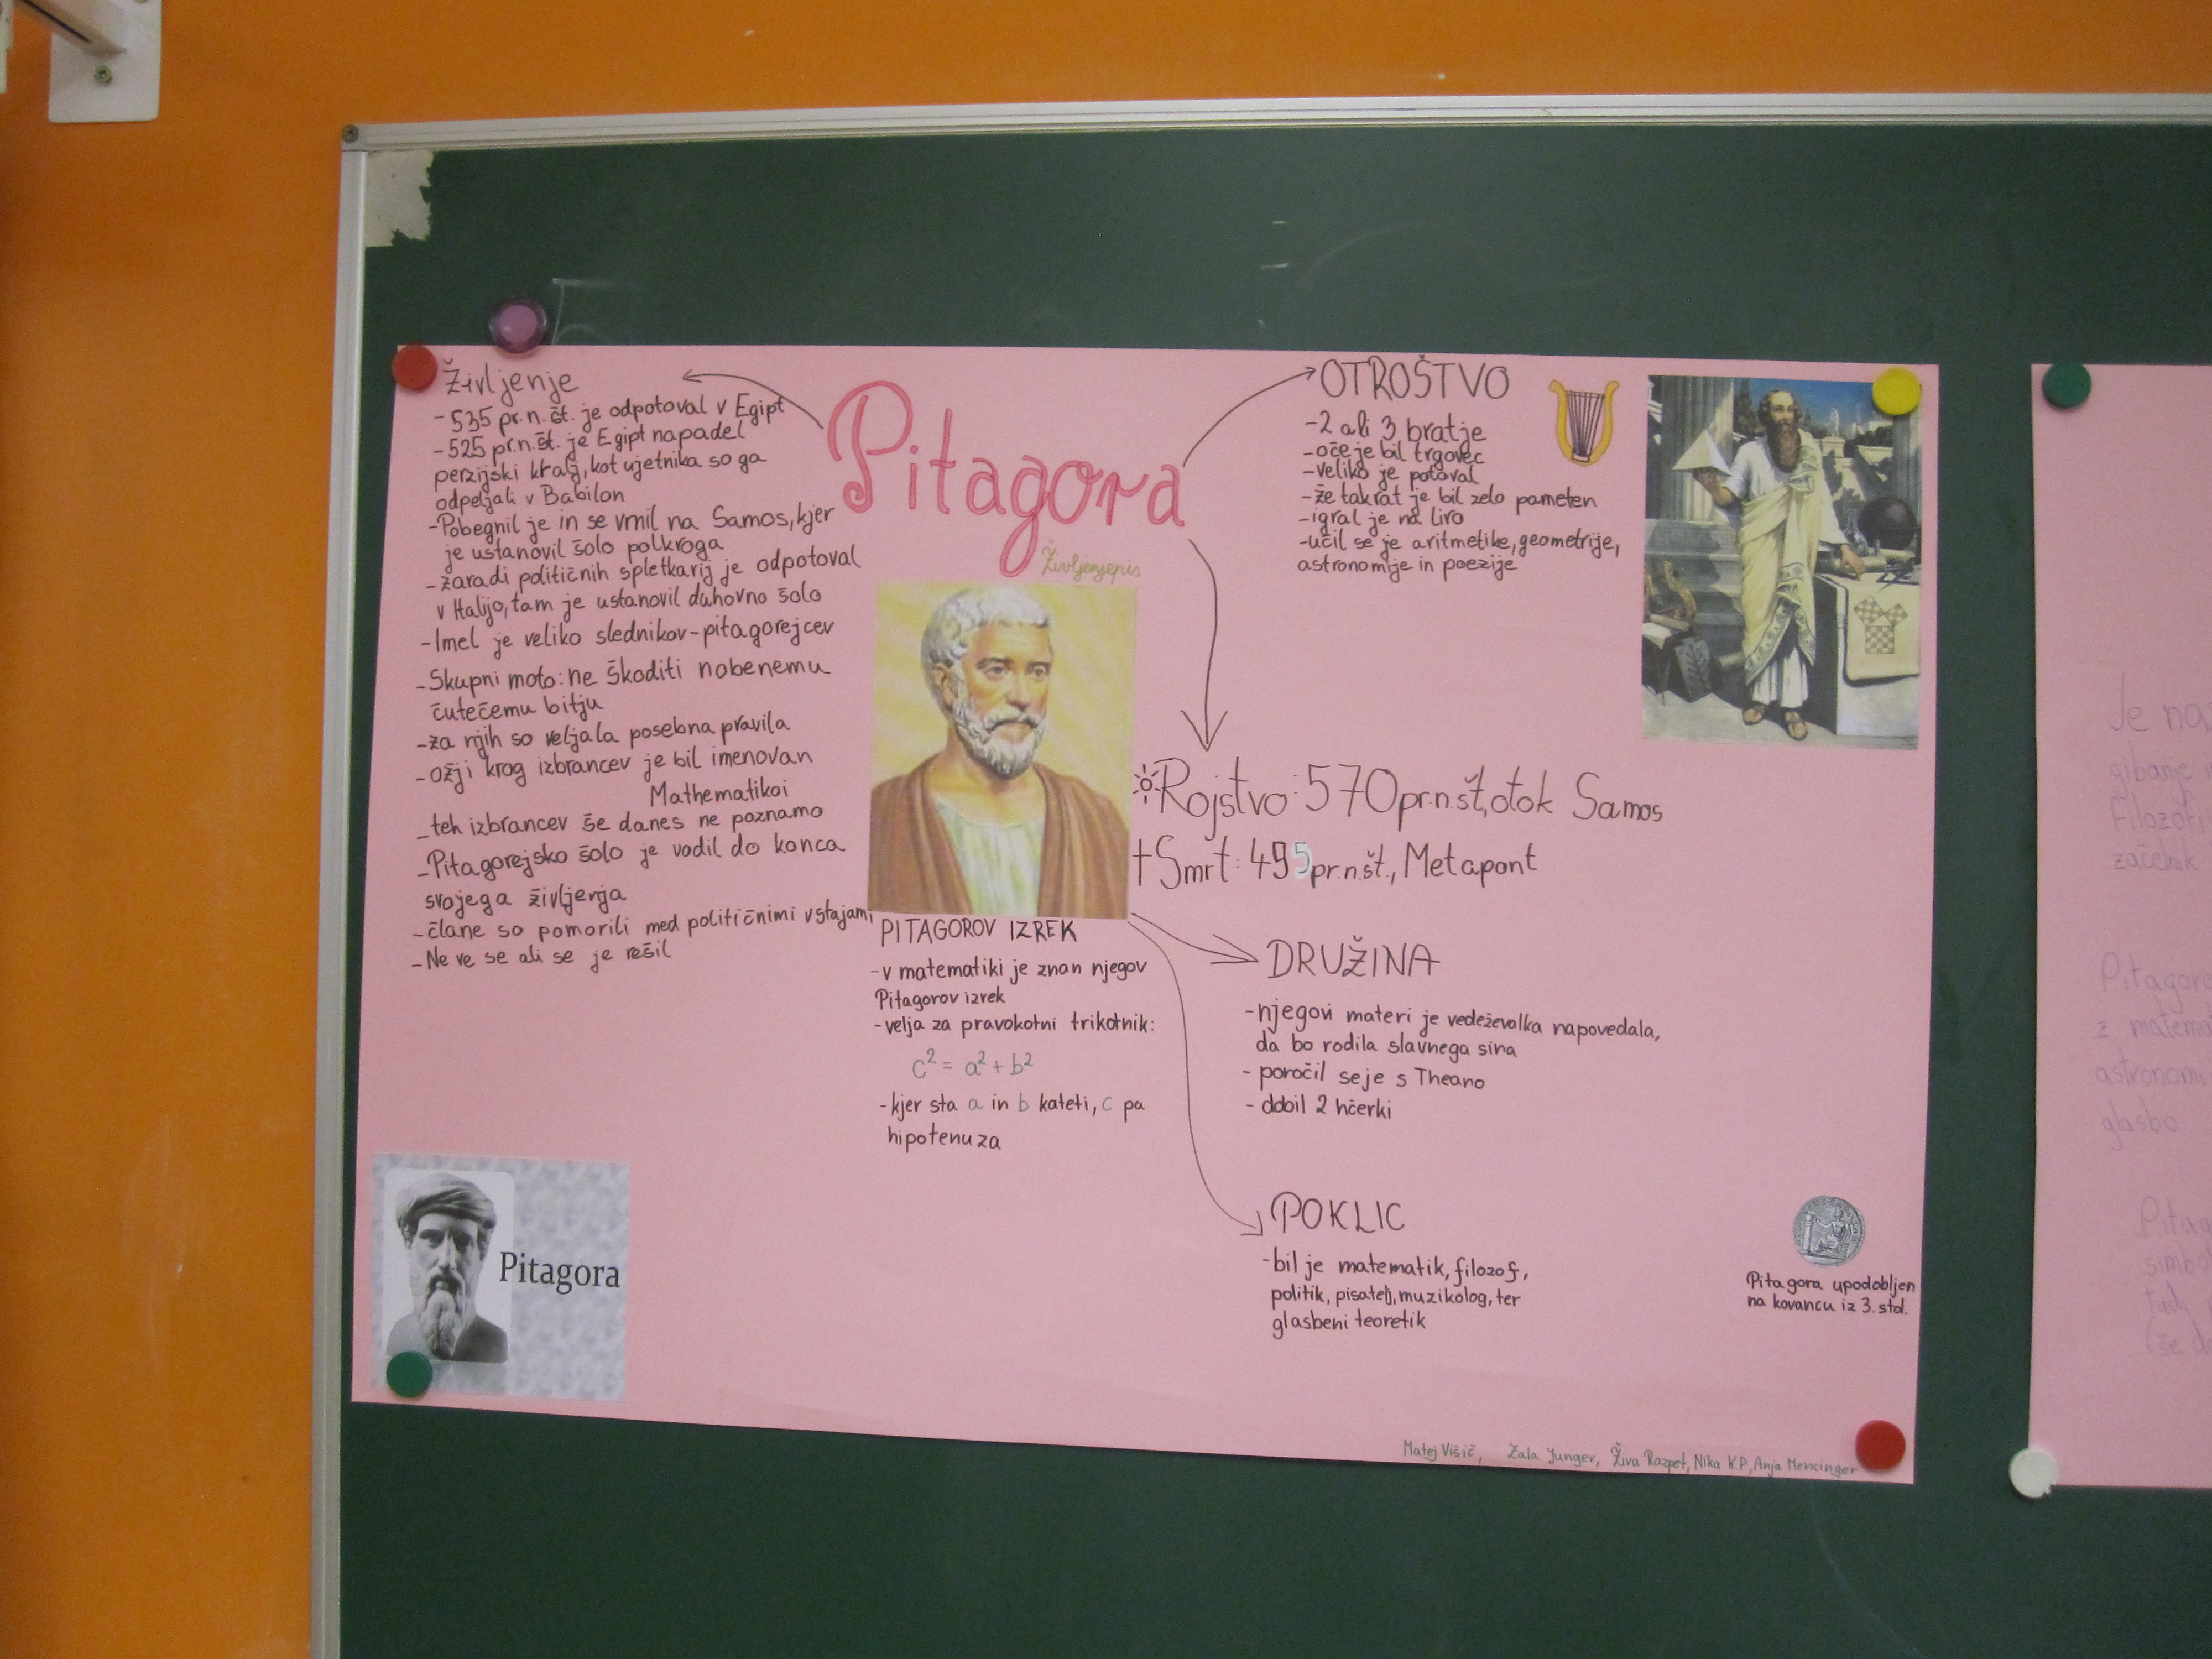 Pitagora
Življenjepis
Življenje
- 535 pr.n.št. je odpotoval v Egipt
- 525 pr.n.št. je Egipt napadel
perzijski kralj, kot ujetnika so ga
odpeljali v Babilon
- Pobegnil je in se vrnil na Samos, kjer
je ustanovil šolo polkroga
- zaradi političnih spletkarij je odpotoval
v Italijo, tam je ustanovil duhovno šolo
- Imel je veliko slednikov - pitagorejcev
- Skupni moto: ne škoditi nobenemu
čutečemu bitju
- za njih so veljala posebna pravila
- ožji krog izbrancev je bil imenovan
Mathematikoi
- teh izbrancev še danes ne poznamo
- Pitagorejsko šolo je vodil do konca
svojega življenja
- člane so pomorili med političnimi vstajami
- Ne ve se ali se je rešil
OTROŠTVO
- 2 ali 3 bratje
- oče je bil trgovec
- veliko je potoval
- že takrat je bil zelo pameten
- igral je na liro
- učil se je aritmetike, geometrije,
astronomije in poezije
Rojstvo: 570 pr.n.št, otok Samos
† Smrt: 495 pr.n.št., Metapont
PITAGOROV IZREK
- v matematiki je znan njegov
Pitagorov izrek
- velja za pravokotni trikotnik:
c² = a² + b²
- kjer sta a in b kateti, c pa
hipotenuza
DRUŽINA
- njegovi materi je vedeževalka napovedala,
da bo rodila slavnega sina
- poročil se je s Theano
- dobil 2 hčerki
POKLIC
- bil je matematik, filozof,
politik, pisatelj, muzikolog, ter
glasbeni teoretik
Pitagora
Pitagora upodobljen
na kovancu iz 3. stol.
Matej Višič, Zala Junger, Živa Razpet, Nika K.P., Anja Mencinger
Je na
gibanje
Filozofi
začetnik
Pitagore
z matema
astronomi
glasbo
Pitag
simbo
tudi
(še da